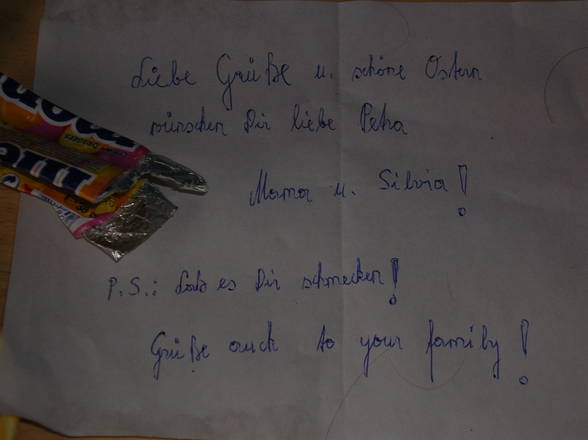 Liebe Grüße u. schöne Ostern
wünschen Dir liebe Petra
Mama u. Silvia!
P.S.: Laß es Dir schmecken!
Grüße auch to your family!